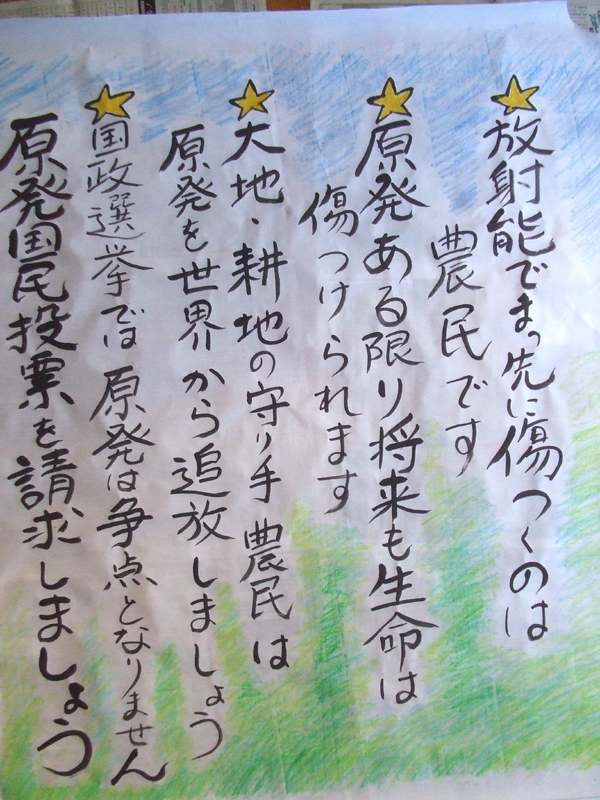 放射能でまっ先に傷つくのは
農民です
原発ある限り将来も生命は
傷つけられます
大地・耕地の守り手農民は
原発を世界から追放しましょう
国政選挙では原発は争点となりません
原発国民投票を請求しましょう